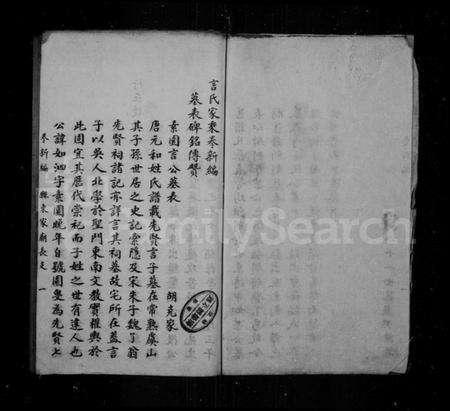 言氏家乘奉新編
墓表碑銘傳贊
素園言公墓表
胡克家
唐元和姓氏譜載先賢言子墓在常熟虞山
其子孫世居之史記索隱及宋朱子魏了翁
先賢祠諸記亦詳言其祠墓故宅所在蓋言
子以吳人北學於聖門東南文教實權輿於
此固宜其歷代崇祀而子姓之世有達人也
公諱如泗字素園晚年自號園叟為先賢七
奉新編
一
FamilySearch